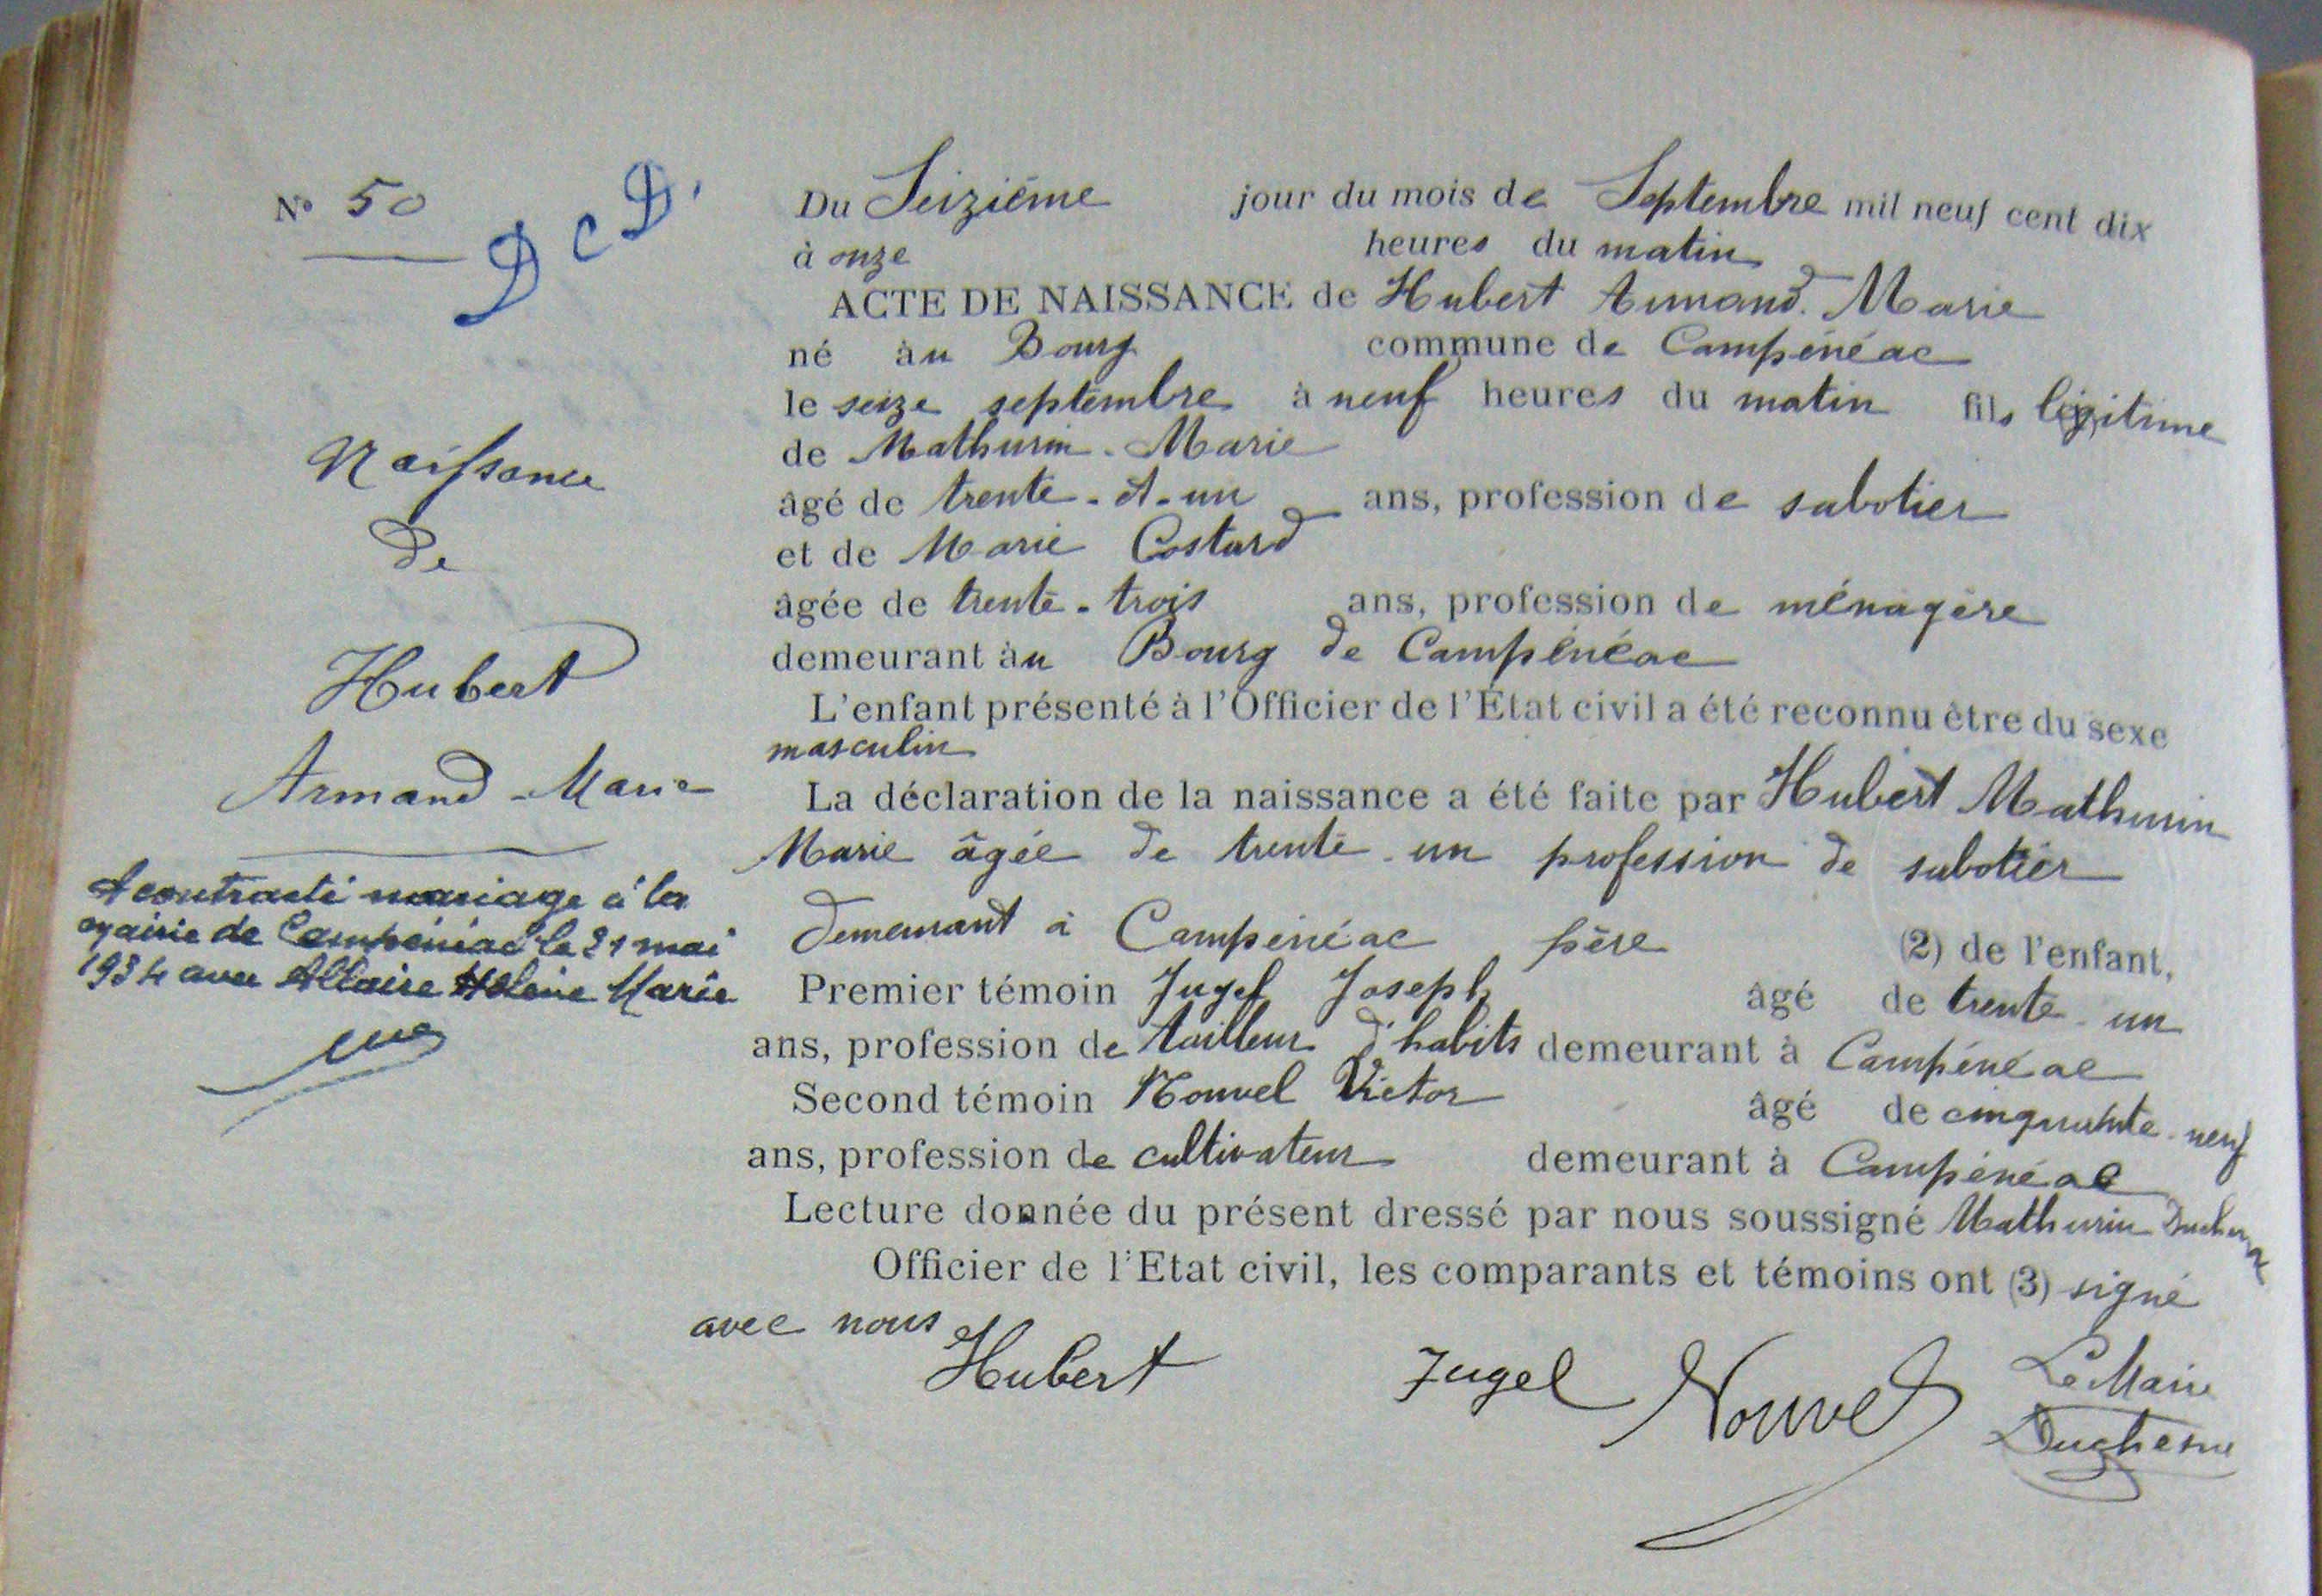 N° 50
D c D.
Naissance
de
Hubert
Armand - Marie
A contracté mariage à la
mairie de Campénéac le 21 mai
1934 avec Allaire Hélène Marie
Du Seizième jour du mois de Septembre mil neuf cent dix
à onze heures du matin
ACTE DE NAISSANCE de Hubert Armand Marie
né àu Bourg commune de Campénéac
le seize septembre à neuf heures du matin fils légitime
de Mathurin - Marie
âgé de trente - et - un ans, profession de sabotier
et de Marie Costard
âgée de trente - trois ans, profession de ménagère
demeurant àu Bourg de Campénéac
L'enfant présenté à l'Officier de l'État civil a été reconnu être du sexe
masculin
La déclaration de la naissance a été faite par Hubert Mathurin
Marie âgée de trente - un profession de sabotier
demeurant à Campénéac père (2) de l'enfant,
Premier témoin Jugel Joseph âgé de trente - un
ans, profession de tailleur d'habits demeurant à Campénéac
Second témoin Nouvel Victor âgé de cinquante - neuf
ans, profession de cultivateur demeurant à Campénéac
Lecture donnée du présent dressé par nous soussigné Mathurin Duchesne
Officier de l'Etat civil, les comparants et témoins ont (3) signé
avec nous
Hubert Jugel Nouvel Le Maire
Duchesne